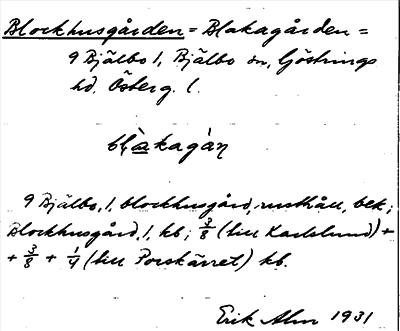 Blockhusgården = Blakagården =
9 Bjälbo 1, Bjälbo sn, Göstrings
hd. Österg. l.
blàkagàɳ
9 Bjälbo, 1, blockhusgård, rusthåll, bek;
Blockhusgård, 1, kb; 3/8 (till Karlslund) +
+ 3/8 + 1/4 (till Porskärret) kb.
Erik Alm 1931